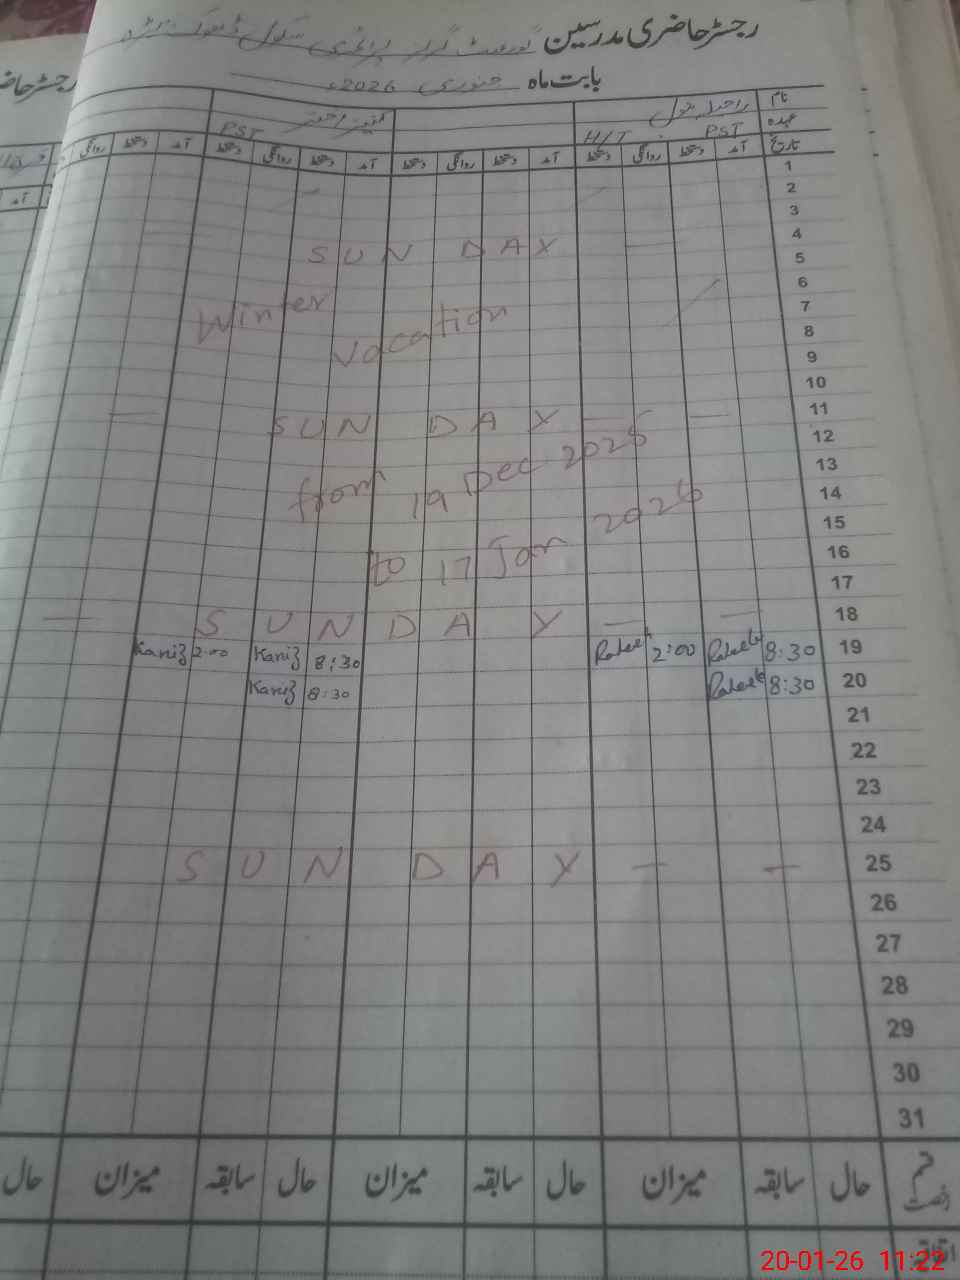 رجسٹر حاضری مدرسین گورنمنٹ گرلز پرائمری سکول
بابت ماہ جنوری 2026ء
نام
عہدہ H/T PST PST
تاریخ آمد دستخط روانگی دستخط آمد دستخط روانگی دستخط آمد دستخط روانگی دستخط آمد دستخط روانگی
1
2
3
4
SUN DAY
5
6
Winter
7
vacation
8
9
10
11
SUN DAY
12
from 19 Dec 2025
13
14
15
to 17 Jan 2026
16
17
18
SUN DAY
19 8:30 2:00 8:30 Kaniz 2:00 Kaniz
20 8:30 8:30 Kaniz
21
22
23
24
25
SUN DAY
26
27
28
29
30
31
قسم رخصت حال سابقہ میزان حال سابقہ میزان حال سابقہ میزان حال
اتفاقیہ
20-01-26 11:22